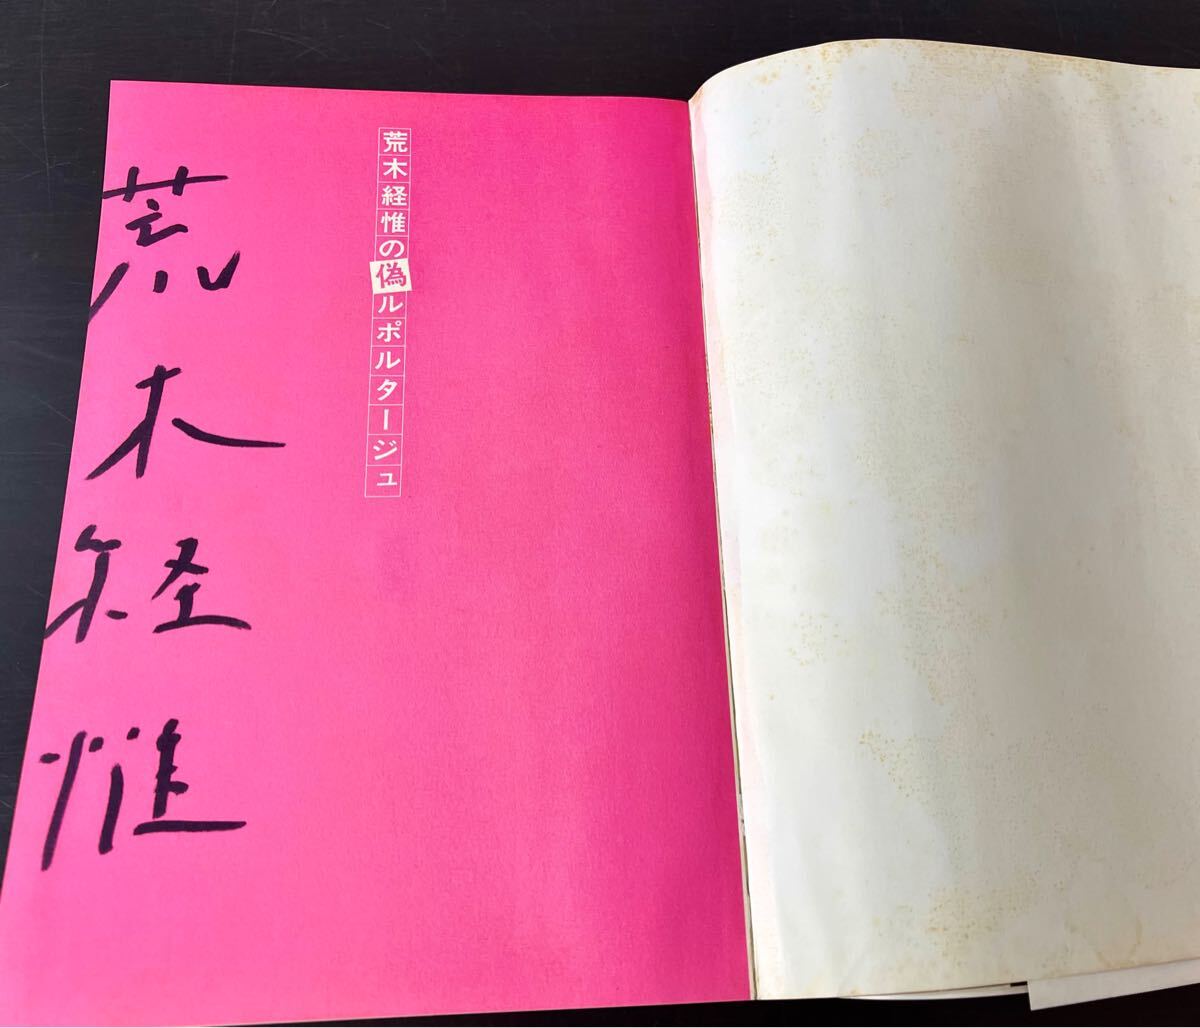 荒木経惟の偽ルポルタージュ
荒木経惟